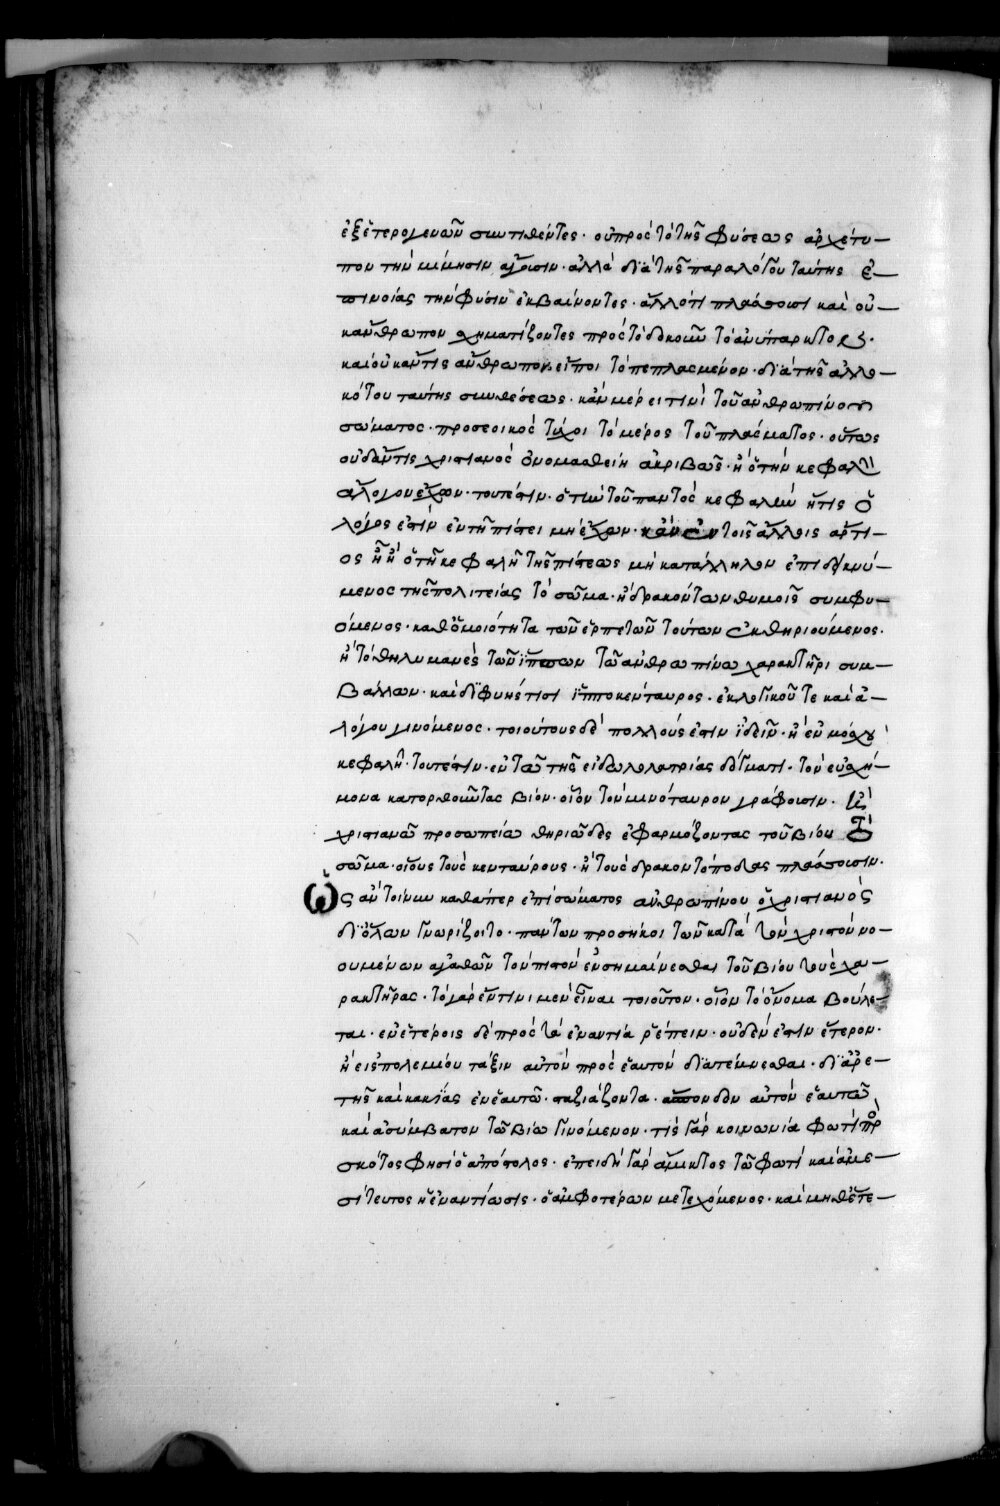 ἐξ ἑτερογενῶν συντιθέντες· οὐ πρὸς τὸ τῆς φύσεως ἀρχέτυ-
πον τὴν μίμησιν ἄγουσιν· ἀλλὰ διὰ τῆς παραλόγου ταύτης ἐ-
πινοίας τὴν φύσιν ἐκβαίνοντες· ἄλλό τι πλάσσουσι καὶ οὐ
κ ἄνθρωπον σχηματίζοντες πρὸς τὸ δοκοῦν τὸ ἀνύπαρκτον·
καὶ οὐκ ἄν τις ἄνθρωπον εἴποι τὸ πεπλασμένον· διὰ τῆς ἀλλο-
κότου ταύτης συνθέσεως· κἂν μέρει τινὶ τοῦ ἀνθρωπίνου
σώματος· προσεοικὸς τύχοι τὸ μέρος τοῦ πλάσματος· οὕτως
οὐδ' ἄν τις χριστιανὸς ὀνομασθείη ἀκριβῶς· ἢ ὁ τὴν κεφαλὴν
ἄλογον ἔχων· τουτέστιν· ὁ τὴν τοῦ παντὸς κεφαλὴν ἥτις ὁ
λόγος ἐστὶν ἐν τῇ πίστει μὴ ἔχων· κἂν ἐν τοῖς ἄλλοις ἄρτι-
ος ᾖ ἢ ὁ τῇ κεφαλῇ τῆς πίστεως μὴ κατάλληλον ἐπιδεικνύ-
μενος τῆς πολιτείας τὸ σῶμα· ἢ δρακόντων θυμοῖς συμφυ-
όμενος· καθ' ὁμοιότητα τῶν ἑρπετῶν τούτων ἐκθηριούμενος·
ἢ τὸ θηλυμανὲς τῶν ἵππων τῷ ἀνθρωπίνῳ χαρακτῆρι συμ-
βάλλων· καὶ διφυής τίς ἱπποκένταυρος· ἐκ λογικοῦ τε καὶ ἀ-
λόγου γινόμενος· τοιούτους δὲ πολλούς ἐστιν ἰδεῖν· ἢ ἐν μόσχου
κεφαλῇ· τουτέστιν· ἐν τῷ τῆς εἰδωλολατρίας δόγματι· τὸν εὐσχή-
μονα κατορθοῦντας βίον· οἷον τὸν μινόταυρον γράφουσιν· ἢ
χριστιανῷ προσωπείῳ θηριῶδες ἐφαρμόζοντας τοῦ βίου τὸ
σῶμα· οἵους τοὺς κενταύρους· ἢ τοὺς δρακοντόποδας πλάσσουσιν·
Ὡς ἂν τοίνυν καθάπερ ἐπὶ σώματος ἀνθρωπίνου ὁ χριστιανὸς
δι' ὅλων γνωρίζοιτο· πάντων προσήκοι τῶν κατὰ τὸν χριστὸν νο-
ουμένων ἀγαθῶν τὸν πιστὸν ἐνσημαίνεσθαι τοῦ βίου τοὺς χα-
ρακτῆρας· τὸ γὰρ ἔν τινι μὲν εἶναι τοιοῦτον· οἷον τὸ ὄνομα βούλε-
ται· ἐν ἑτέροις δὲ πρὸς τὰ ἐναντία ῥέπειν· οὐδέν ἐστιν ἕτερον·
ἢ εἰς πολεμίου τάξιν αὐτὸν πρὸς ἑαυτὸν διατέμνεσθαι· δι' ἀρε-
τῆς καὶ κακίας ἐν ἑαυτῷ στασιάζοντα· ἄσπονδον αὐτὸν ἑαυτῷ
καὶ ἀσύμβατον τῷ βίῳ γινόμενον· τίς γὰρ κοινωνία φωτὶ πρὸς
σκότος φησὶ ὁ ἀπόστολος· ἐπειδὴ γὰρ ἄμικτος τῷ φωτὶ καὶ ἀμε-
σίτευτος ἡ ἐναντίωσις· ὁ ἀμφοτέρων μετεχόμενος· καὶ μηθέτε-